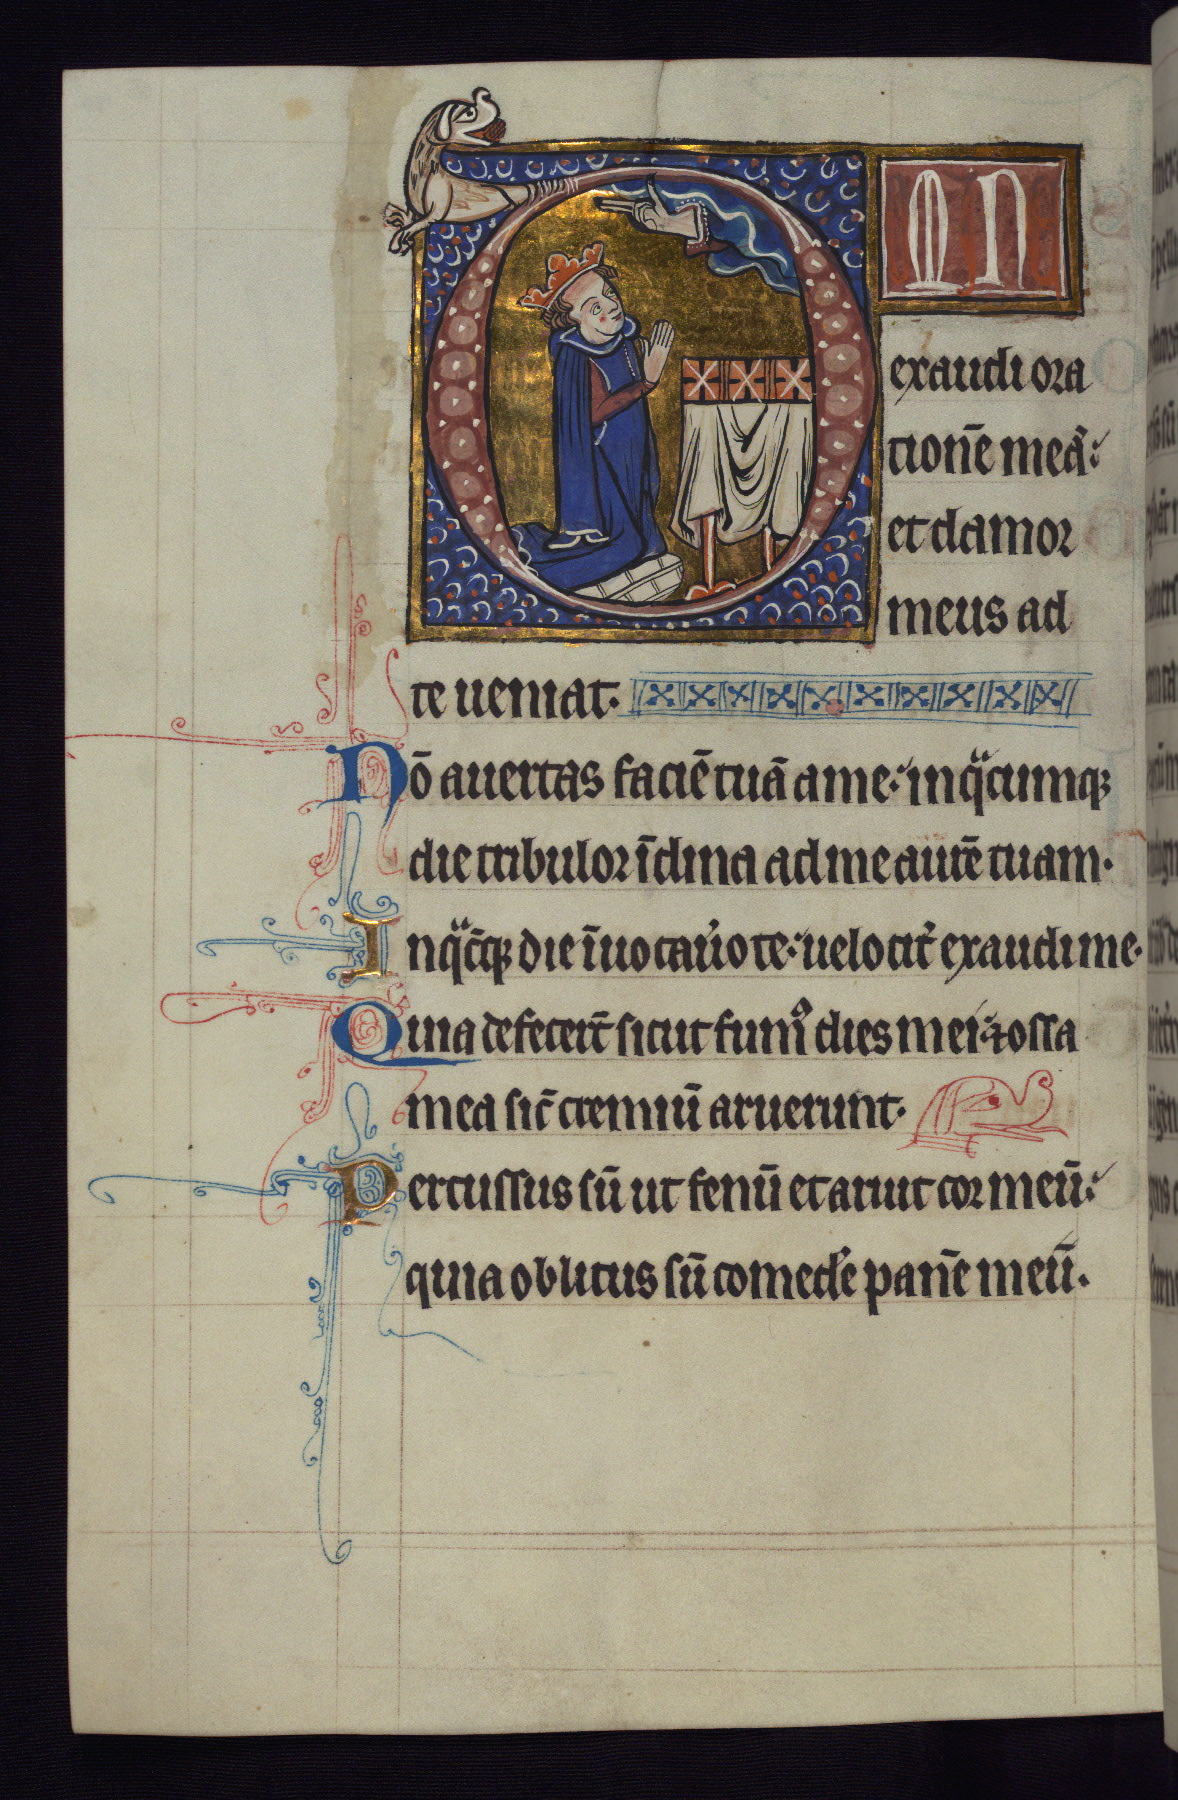 Dn
exaudi ora
tionē meā:
et clamor
meus ad
te ueniat.
Nō auertas faciē tuā a me: in qͣcumqꝫ
die tribulor īclina ad me aurē tuam.
In qͣcūqꝫ die īuocauˀo te: uelocitˀ exaudi me.
Quia defecerūt sicut fumꝰ dies mei: ⁊ ossa
mea sic̄ cremiū aruerunt.
Percussus sū ut fenū et aruit cor meū:
quia oblitus sū comedˀe panē meū.